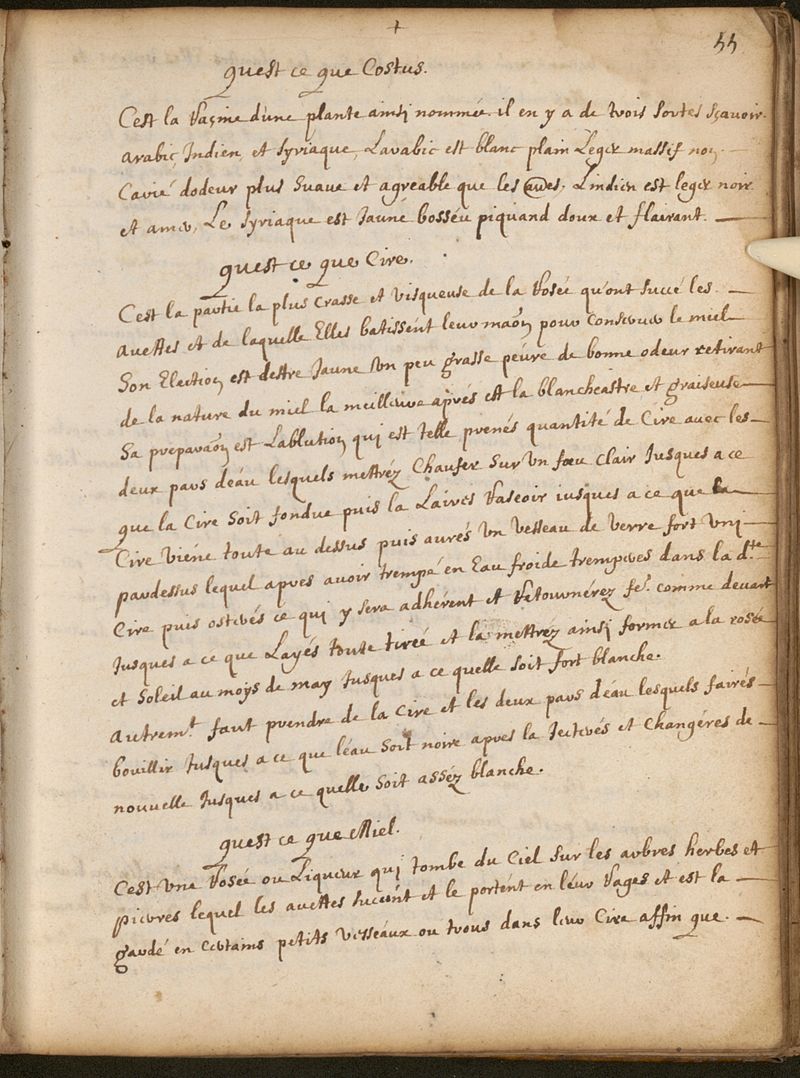 +
44
quest ce que Costus.
Cest la Raçine dune plante ainsj nommée. il en y a de trois sortes sçavoir.
arabic, Indien, et syriaque, Larabic est blanc plain Leger massif non
Carié dodeur plus Suave et agreable que les aues. Lindien est leger noir
et amer, Le syriaque est Jauné bosséu piquand doux et flairant.
quest ce que Cire.
Cest la partie la plus crasse et visqueuse de la Rosée qu'ont succé les
avettes et de laquelle Elles batissént leur maõn pour conserver le miel
Son Election est destre Jaune Un peu grasse péure de bonne odeur retirant
de la nature du miel la meilleure aprés est la blancheastre et graiseuse
Sa preparaõn est Lablution qui est telle prenés quantité de Cire avec les
deux pars déau lesquels mettréz Chaufer Sur Un foeu clair Jusques a ce
que la Cire Soit fondue puis la Lairés Raseoir iusques a ce que la
Cire viéne toute au dessus puis aurés Un vesseau de verre fort Vnj
pardessus lequel apres avoir trempé en Eau froide tremperes dans la d.te
Cire puis osterés ce qui y sera adhérent et Retournérez fe.r comme devant
Jusques a ce que Layés toute tireé et la mettréz ainsj former a la rosée
et Soleil au moys de may Jusques a ce quelle soit fort blanche.
Autrem.t faut prendre de la Cire et les deux pars déau lesquels fairés
bouillir Jusques a ce que léau Soit noire apres la Jetterés et Changéres de
nouvelle Jusques a ce quelle Soit asséz blanche.
quest ce que Miel.
Cest Une Rosée ou Liqueur quj tombe du Ciel Sur les arbres herbes et
pierres lequel les avettes sucent et le portént en léur Rages et est la
gardé en Certains petits vesseaux ou trous dans leur Cire affin que.